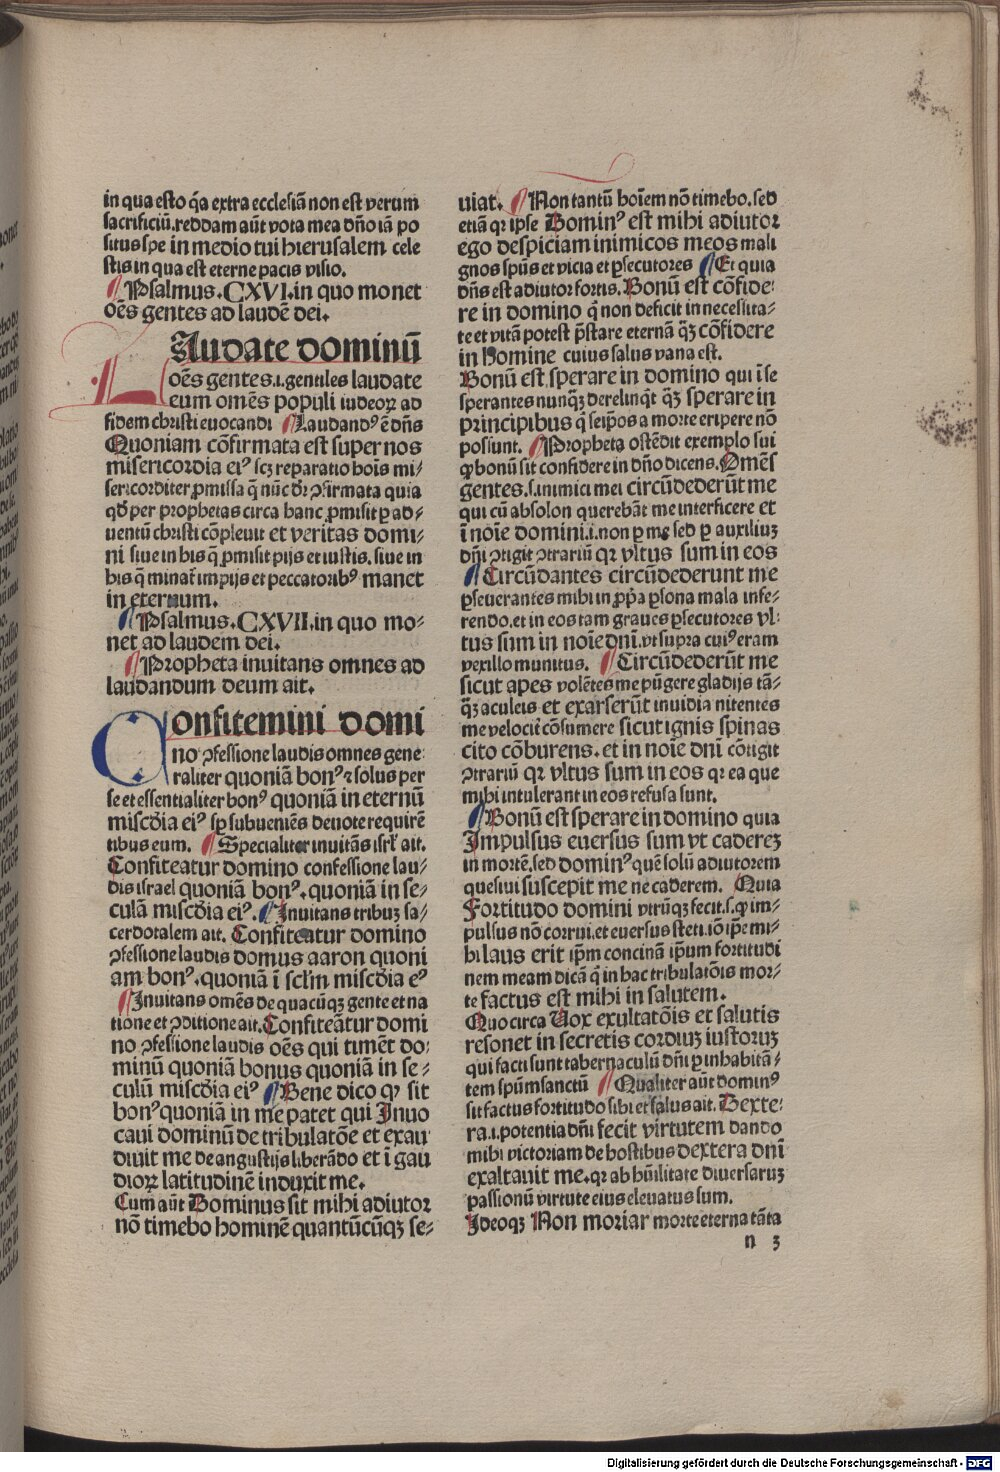 in qua esto q̄a extra ecclesiā non est verum
sacrificiū.reddam aūt vota mea dn̄o iā po
situs spe in medio tui hierusalem cele
stis in qua est eterne pacis visio.
¶Psalmus.CXVI.in quo monet
oēs gentes ad laudē dei.
LAudate dominū
oēs gentes.i.gentiles laudate
eum omēs populi iudeoꝝ ad
fidem christi euocandi ¶Laudandꝰ ē dn̄s
Quoniam cōfirmata est super nos
misericordia eiꝰ scꝫ reparatio hoīs mi/
sericorditer ꝓmissa q̄ nūc dr̄ ꝯfirmata quia
qd̄ per prophetas circa hanc ꝓmisit ꝑ ad/
uentū christi cōpleuit et veritas domi/
ni siue in his q̄ ꝓmisit pijs et iustis. siue in
his q̄ minat̄ impijs et peccatoribꝰ manet
in eternum.
¶Psalmus.CXVII.in quo mo/
net ad laudem dei.
¶Propheta inuitans omnes ad
laudandum deum ait.
COnfitemini domi
no ꝯfessione laudis omnes gene/
raliter quoniā bonꝰ ⁊ solus per
se et essentialiter bonꝰ quoniā in eternū
miscd̄ia eiꝰ sꝑ subueniēs deuote requirē
tibus eum. ¶Specialiter inuitās isrl̄ ait.
Confiteatur domino confessione lau/
dis israel quoniā bonꝰ.quoniā in se/
culā miscd̄ia eiꝰ.¶Inuitans tribuꝫ sa/
cerdotalem ait. Confiteatur domino
ꝯfessione laudis domus aaron quoni
am bonꝰ.quoniā ī scl̄m miscd̄ia eꝰ
¶Inuitans omēs de quacūqꝫ gente et na
tione et ꝯditione ait.Confiteātur domi
no ꝯfessione laudis oēs qui timēt do/
minū quoniā bonus quoniā in se/
culū miscd̄ia eiꝰ ¶Bene dico qꝛ sit
bonꝰquoniā in me patet qui Inuo
caui dominū de tribulatōe et exau
diuit me de angustijs liberādo et ī gau
dioꝝ latitudinē induxit me.
Cum aūt Dominus sit mihi adiutor
nō timebo hominē quantūcūqꝫ se/
uiat. ¶Non tantū hoīem nō timebo.sed
etiā qꝛ ipse Dominꝰ est mihi adiutor
ego despiciam inimicos meos mali
gnos spūs et vicia et ꝑsecutores ¶Et quia
dn̄s est adiutor fortis. Bonū est cōfide/
re in domino q̄ non deficit in necessita/
te et vitā potest p̄stare eternā qꝫ cōfidere
in Homine cuius salus vana est.
Bonū est sperare in domino qui ī se
sperantes nunqꝫ derelinqt̄ qꝫ sperare in
principibus q̄ seip̄os a morte eripere nō
possunt. ¶Propheta ostēdit exemplo sui
ꝙ bonū sit confidere in dn̄o dicens. Omēs
gentes.s.inimici mei circūdederūt me
qui cū absolon querebāt me interficere et
ī noīe domini.i.non ꝑ me sed ꝑ auxiliuꝫ
dn̄i ꝯtigit ꝯtrariū qꝛ vltus sum in eos
¶Circūdantes circūdederunt me
ꝑseuerantes mihi in ꝓp̄a ꝑsona mala infe/
rendo.et in eos tam graues ꝑsecutores vl/
tus sum in noīe dn̄i.vt supra cuiꝰ eram
vexillo munitus. ¶Circūdederūt me
sicut apes volētes me pūgere gladijs tā/
qꝫ aculeis et exarserūt inuidia nitentes
me velocit̄ cōsumere sicut ignis spinas
cito cōburens.et in noīe dn̄i cōtigit
ꝯtrariū qꝛ vltus sum in eos qꝛ ea que
mihi intulerant in eos refusa sunt.
¶Bonū est sperare in domino quia
Impulsus euersus sum vt cadereꝫ
in mortē.sed dominꝰ quē solū adiutorem
quesiui suscepit me ne caderem. Quia
Fortitudo domini vtrūqꝫ fecit.s.ꝙ im/
pulsus nō corrui.et euersus steti.iō ip̄e mi/
hi laus erit ip̄m concinā ip̄um fortitudi
nem meam dicā q̄ in hac tribulatōis mor/
te factus est mihi in salutem.
Quocirca Uox exultatōis et salutis
resonet in secretis cordiuꝫ iustoruꝫ
qui facti sunt tabernaculū dn̄i ꝑ inhabitā/
tem spūmsanctū ¶Qualiter aūt dominꝰ
sit factus fortitudo sibi et salus ait. Dexte/
ra.i.potentia dn̄i fecit virtutem dando
mihi victoriam de hostibus dextera dn̄i
exaltauit me.qꝛ ab hūilitate diuersaruꝫ
passionū virtute eius eleuatus sum.
Ideoqꝫ Non moriar morte eterna tāta
n 3
Digitalisierung gefördert durch die Deutsche Forschungsgemeinschaft - DFG